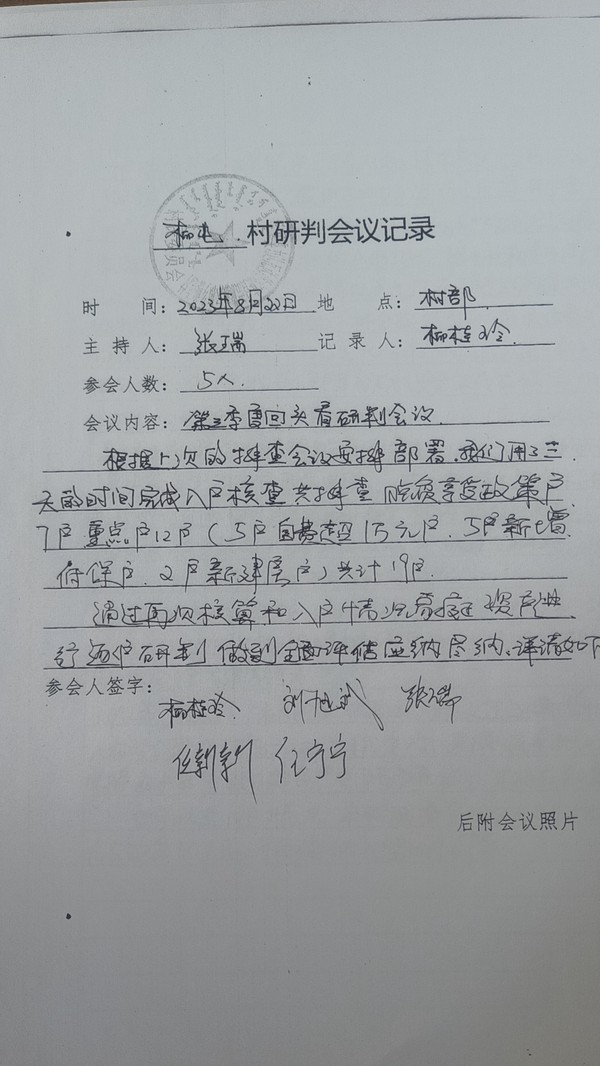 柳屯 村研判会议记录
时 间：2023年8月22日 地 点：村部
主 持 人：张瑞 记 录 人：柳桂玲
参会人数：5人
会议内容：第三季度回头看研判会议
根据上次的排查会议安排部署，我们用了三
天的时间完成入户核查 共排查 脱贫享受政策户
7户 重点户12户（5户自费超1万元户、5户新增
低保户、2户新建房户）共计19户
通过再次核算和入户情况 家庭 资产进
行逐户研判 做到全面评估应纳尽纳。详请如下
参会人签字：
柳桂玲 刘旭武 张瑞
任新新 任宁宁
后附会议照片